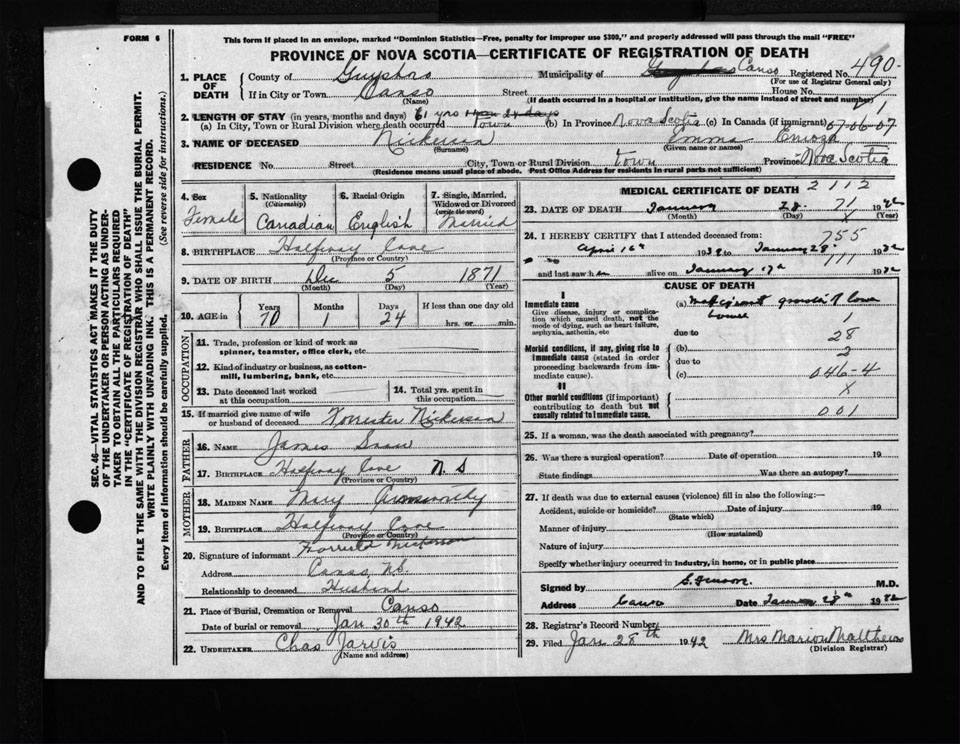 FORM 6
This form if placed in an envelope, marked "Dominion Statistics—Free, penalty for improper use $300," and properly addressed will pass through the mail "FREE"
PROVINCE OF NOVA SCOTIA—CERTIFICATE OF REGISTRATION OF DEATH
1. PLACE OF DEATH
County of Guysboro Municipality of Canso Registered No. 490
(For use of Registrar General only)
If in City or Town Canso Street House No.
(Name) (If death occurred in a hospital or institution, give the name instead of street and number)
2. LENGTH OF STAY (in years, months and days) 61 yrs 1 mon 24 days
(a) In City, Town or Rural Division where death occurred Town (b) In Province Nova Scotia (c) In Canada (if immigrant) 07-06-07
3. NAME OF DECEASED Nickerson Emma
(Surname) (Given name or names)
RESIDENCE No. Street City, Town or Rural Division Town Province Nova Scotia
(Residence means usual place of abode. Post Office Address for residents in rural parts not sufficient)
4. Sex Female
5. Nationality (Citizenship) Canadian
6. Racial Origin English
7. Single, Married, Widowed or Divorced (write the word) Married
8. BIRTHPLACE Halfway Cove
(Province or Country)
9. DATE OF BIRTH Dec 5 1871
(Month) (Day) (Year)
10. AGE in Years 70 Months 1 Days 24 If less than one day old hrs. or min.
OCCUPATION
11. Trade, profession or kind of work as spinner, teamster, office clerk, etc.
12. Kind of industry or business, as cotton-mill, lumbering, bank, etc.
13. Date deceased last worked at this occupation
14. Total yrs. spent in this occupation
15. If married give name of wife or husband of deceased Nickerson
FATHER
16. NAME James
17. BIRTHPLACE Halfway Cove N S
(Province or Country)
MOTHER
18. MAIDEN NAME Mary
19. BIRTHPLACE Halfway Cove
(Province or Country)
20. Signature of informant Nickerson
Address Canso, N.S.
Relationship to deceased Husband
21. Place of Burial, Cremation or Removal Canso
Date of burial or removal Jan 30th 1942
22. UNDERTAKER Chas Jarvis
(Name and address)
MEDICAL CERTIFICATE OF DEATH 2112
23. DATE OF DEATH January 28 71 1942
(Month) (Day) X (Year)
24. I HEREBY CERTIFY that I attended deceased from: 755
April 16th 1939 to January 28 1942
111
and last saw h er alive on January 17th 1942
CAUSE OF DEATH
I
Immediate cause
Give disease, injury or complication which caused death, not the mode of dying, such as heart failure, asphyxia, asthenia, etc
(a) Malignant growth of lower
bowel 1
due to 28
Morbid conditions, if any, giving rise to immediate cause (stated in order proceeding backwards from immediate cause).
(b) 2
due to
(c) 046-4
II
Other morbid conditions (if important) contributing to death but not causally related to immediate cause.
X
001
25. If a woman, was the death associated with pregnancy?
26. Was there a surgical operation? Date of operation 19
State findings Was there an autopsy?
27. If death was due to external causes (violence) fill in also the following:—
Accident, suicide or homicide? Date of injury 19
(State which)
Manner of injury
(How sustained)
Nature of injury
Specify whether injury occurred in industry, in home, or in public place
Signed by M.D.
Address Canso Date January 28th 1942
28. Registrar's Record Number
29. Filed Jan 28th 1942 Mrs Marion Matthews
(Division Registrar)
SEC. 46—VITAL STATISTICS ACT MAKES IT THE DUTY
OF THE UNDERTAKER OR PERSON ACTING AS UNDER-
TAKER TO OBTAIN ALL THE PARTICULARS REQUIRED
IN THE "CERTIFICATE OF REGISTRATION OF DEATH"
AND TO FILE THE SAME WITH THE DIVISION REGISTRAR WHO SHALL ISSUE THE BURIAL PERMIT.
WRITE PLAINLY WITH UNFADING INK. THIS IS A PERMANENT RECORD.
Every item of information should be carefully supplied. (See reverse side for instructions.)